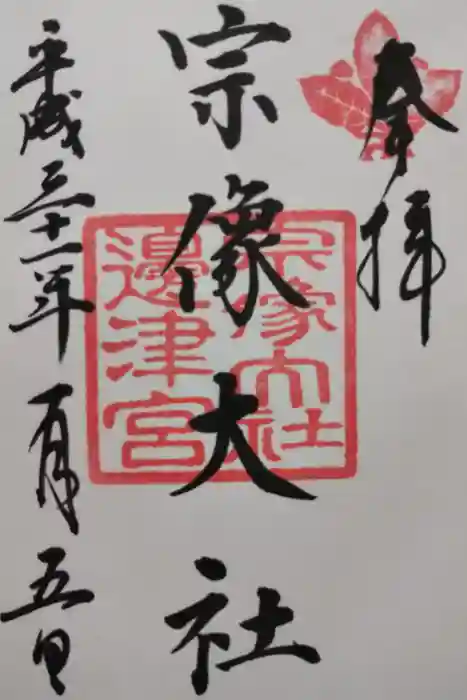 奉拝
宗像大社
宗像大社
邊津宮
平成三十一年一月五日